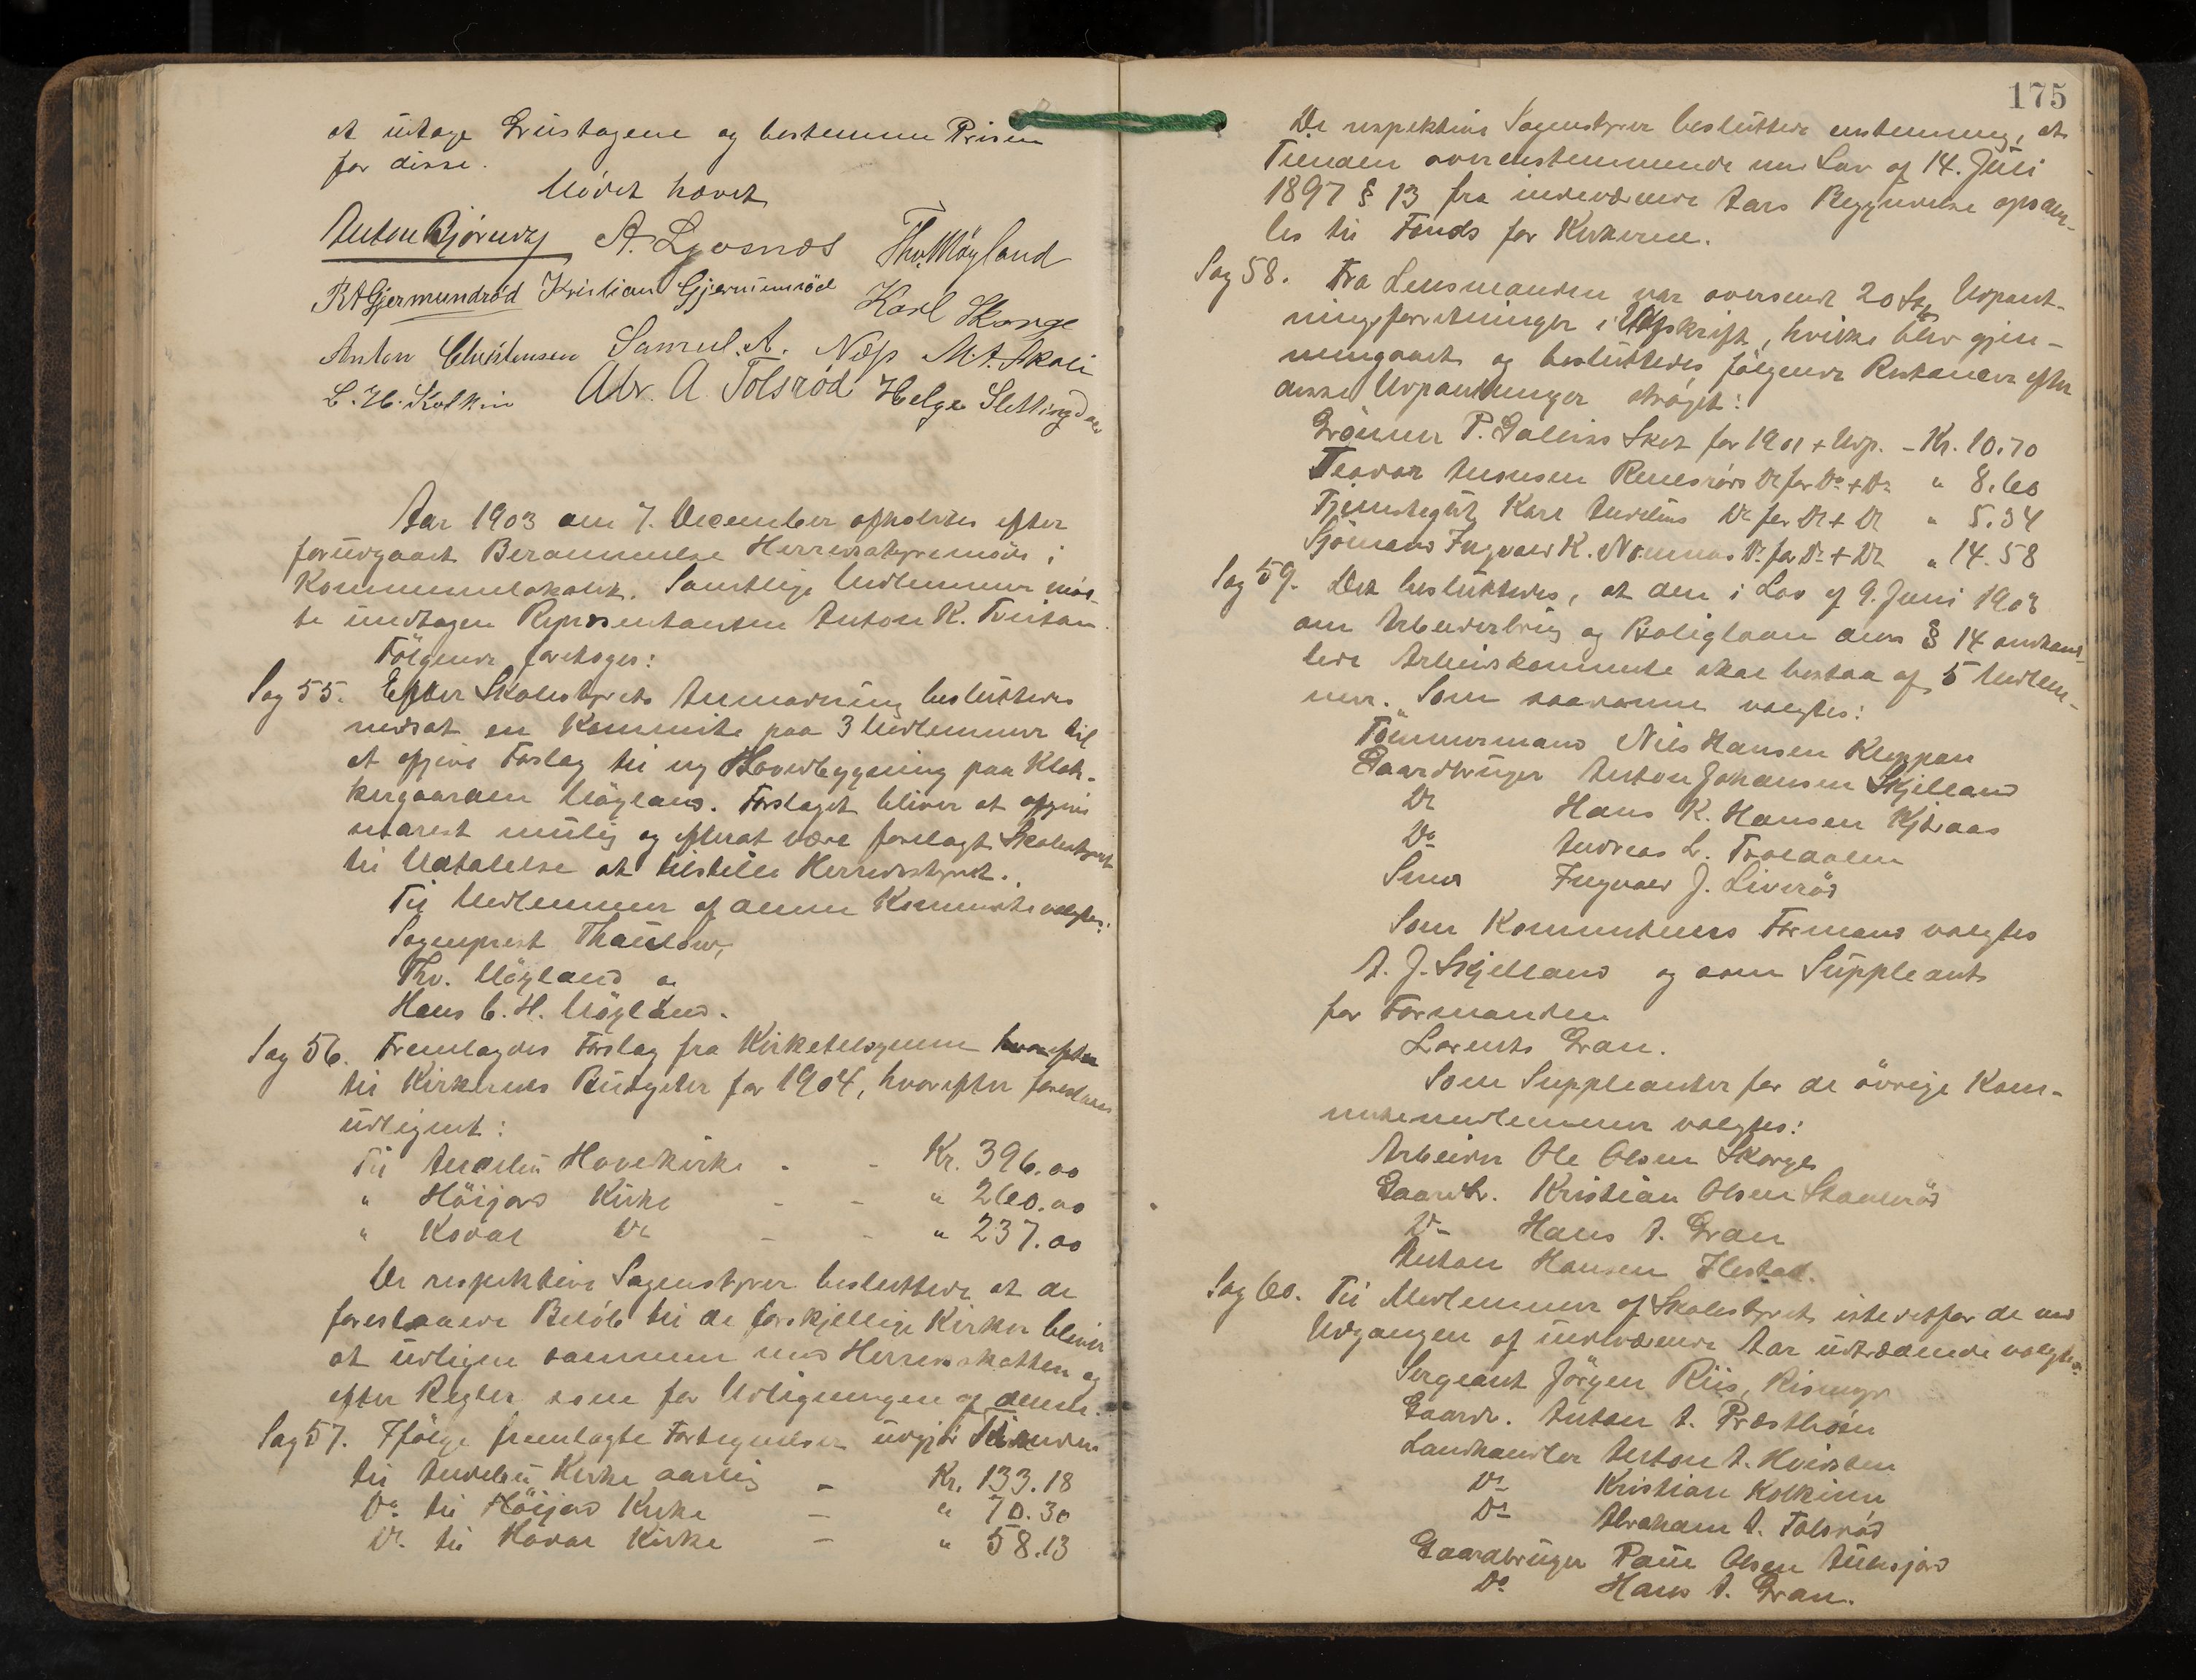 at udtage Grustagene og bestemme Prisen
for disse.
Mödet hævet
Anton Bjørndy A. Lyosnæs Thv. Møyland
R A Gjermundrød Kristian Gjermundröd Karl Skorge
Anton Christensen Samuel. A. Næss M. A. Skoli
L. H. Kolkin Abr. A Tolsrød Helge Slettingdalen
Aar 1903 den 7. December afholdtes efter
forudgaaet Berammelse Herredsstyremöde i
Kommunelokalet. Samtlige Medlemmer möd-
te undtagen Repræsentanten Anton K. Tveitan.
Fölgende foretoges:
Sag 55. Efter Skolestyrets Anmodning besluttedes
nedsat en Kommite paa 3 Medlemmer til
at afgive Forslag til ny Hovedbygning paa Klok-
kergaarden Möyland. Forslaget bliver at afgive
snarest mulig og efterat være forelagt Skolestyret
til Udtalelse at tilstille Herredsstyret.
Til Medlemmer af denne Kommite valgtes:
Sogneprest Thaulow,
Thv. Möyland og
Hans C. H. Möyland.
Sag 56. Fremlagdes Forslag fra Kirketilsynene hvorefter
til Kirkernes Budgeter for 1904, hvorefter foreslaaes
udlignet:
Til Andebu Hovedkirke - - Kr. 396.00
" Höijord Kirke - - " 260.00
" Kodal Do - - " 237.00
De respektive Sognestyrer besluttede at de
foreslaaede Belöb til de forskjellige Kirker bliver
at udligne sammen med Herredsskatten og
efter Regler som for Udligningen af denne.
Sag 57. Ifölge fremlagte Fortegnelser udgjör Tienden
til Andebu Kirke aarlig - Kr. 133.18
Do til Höijord Kirke - " 70.30
Do til Kodal Kirke - " 58.13
175
De respektive Sognestyrer besluttede enstemmig, at
Tienden overensstemmende med Lov af 14. Juli
1897 § 13 fra indeværende Aars Begyndelse opsam-
les til Fonds for Kirkerne.
Sag 58. Fra Lensmanden var oversendt 20 Stk Udpant-
ningsforretninger i Udskrift, hvilke blev gjen-
nemgaaet og besluttedes fölgende Restancer efter
disse Udpantninger ströget:
Grönner P. Gallis Skat for 1901 + Udp. - Kr. 10.70
Teodor Andersen Do for Do + Do " 8.60
Tjenestegut Karl Andebu Do for Do + Do " 5.34
Sjömand Ingvald K. Do for Do + Do " 14.58
Sag 59. Det besluttedes, at den i Lov af 9. Juni 1903
om Arbeiderbrug og Boliglaan dens § 14 omhand-
lede Arbeidskommite skal bestaa af 5 Medlem-
mer. Som saadanne valgtes:
Tömmermand Nils Hansen Kleppan
Gaardbruger Anton Johansen Skjelland
Do Hans K. Hansen Kjeraas
Do Andreas L. Trolldalen
Smed Ingvald J. Liveröd
Som Kommiteens Formand valgtes
A. J. Skjelland og som Suppleant
for Formanden
Lorents Gran.
Som Suppleanter for de övrige Kom-
mitemedlemmer valgtes:
Arbeider Ole Olsen Skorge
Gaardbr. Kristian Olsen Skaueröd
Do Hans A. Gran
Anton Hansen Ilestad.
Sag 60. Til Medlemmer af Skolestyret istedetfor de ved
Udgangen af indeværende Aar udtrædende valgtes:
Sergeant Jörgen Riis, Rismyr
Gaardb. Anton A. Præsthröen
Landhandler Anton A. Hvidsten
Do Kristian Kolkinn
Do Abraham A. Tolsröd
Gaardbruger Paul Olsen Aulesjord
Do Hans A. Gran.